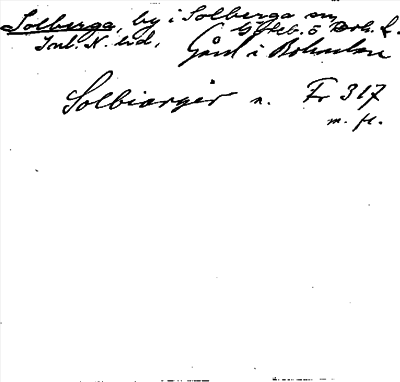 Solberga, by i Solberga sn,
Göteb. o Boh. l.
Inl. N. hd. Gård i Bohuslän
Solbiargir n. Fr 317
m. fl.